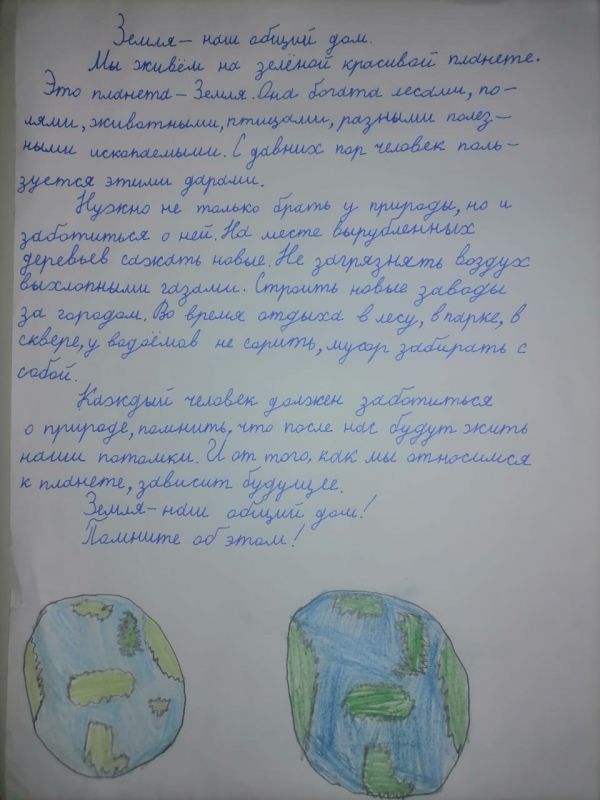 Земля – наш общий дом.
Мы живём на зелёной красивой планете.
Это планета – Земля. Она богата лесами, по-
лями, животными, птицами, разными полез-
ными ископаемыми. С давних пор человек поль-
зуется этими дарами.
Нужно не только брать у природы, но и
заботиться о ней. На месте вырубленных
деревьев сажать новые. Не загрязнять воздух
выхлопными газами. Строить новые заводы
за городом. Во время отдыха в лесу, в парке, в
сквере, у водоёмов не сорить, мусор забирать с
собой.
Каждый человек должен заботиться
о природе, помнить, что после нас будут жить
наши потомки. И от того, как мы относимся
к планете, зависит будущее.
Земля – наш общий дом!
Помните об этом!